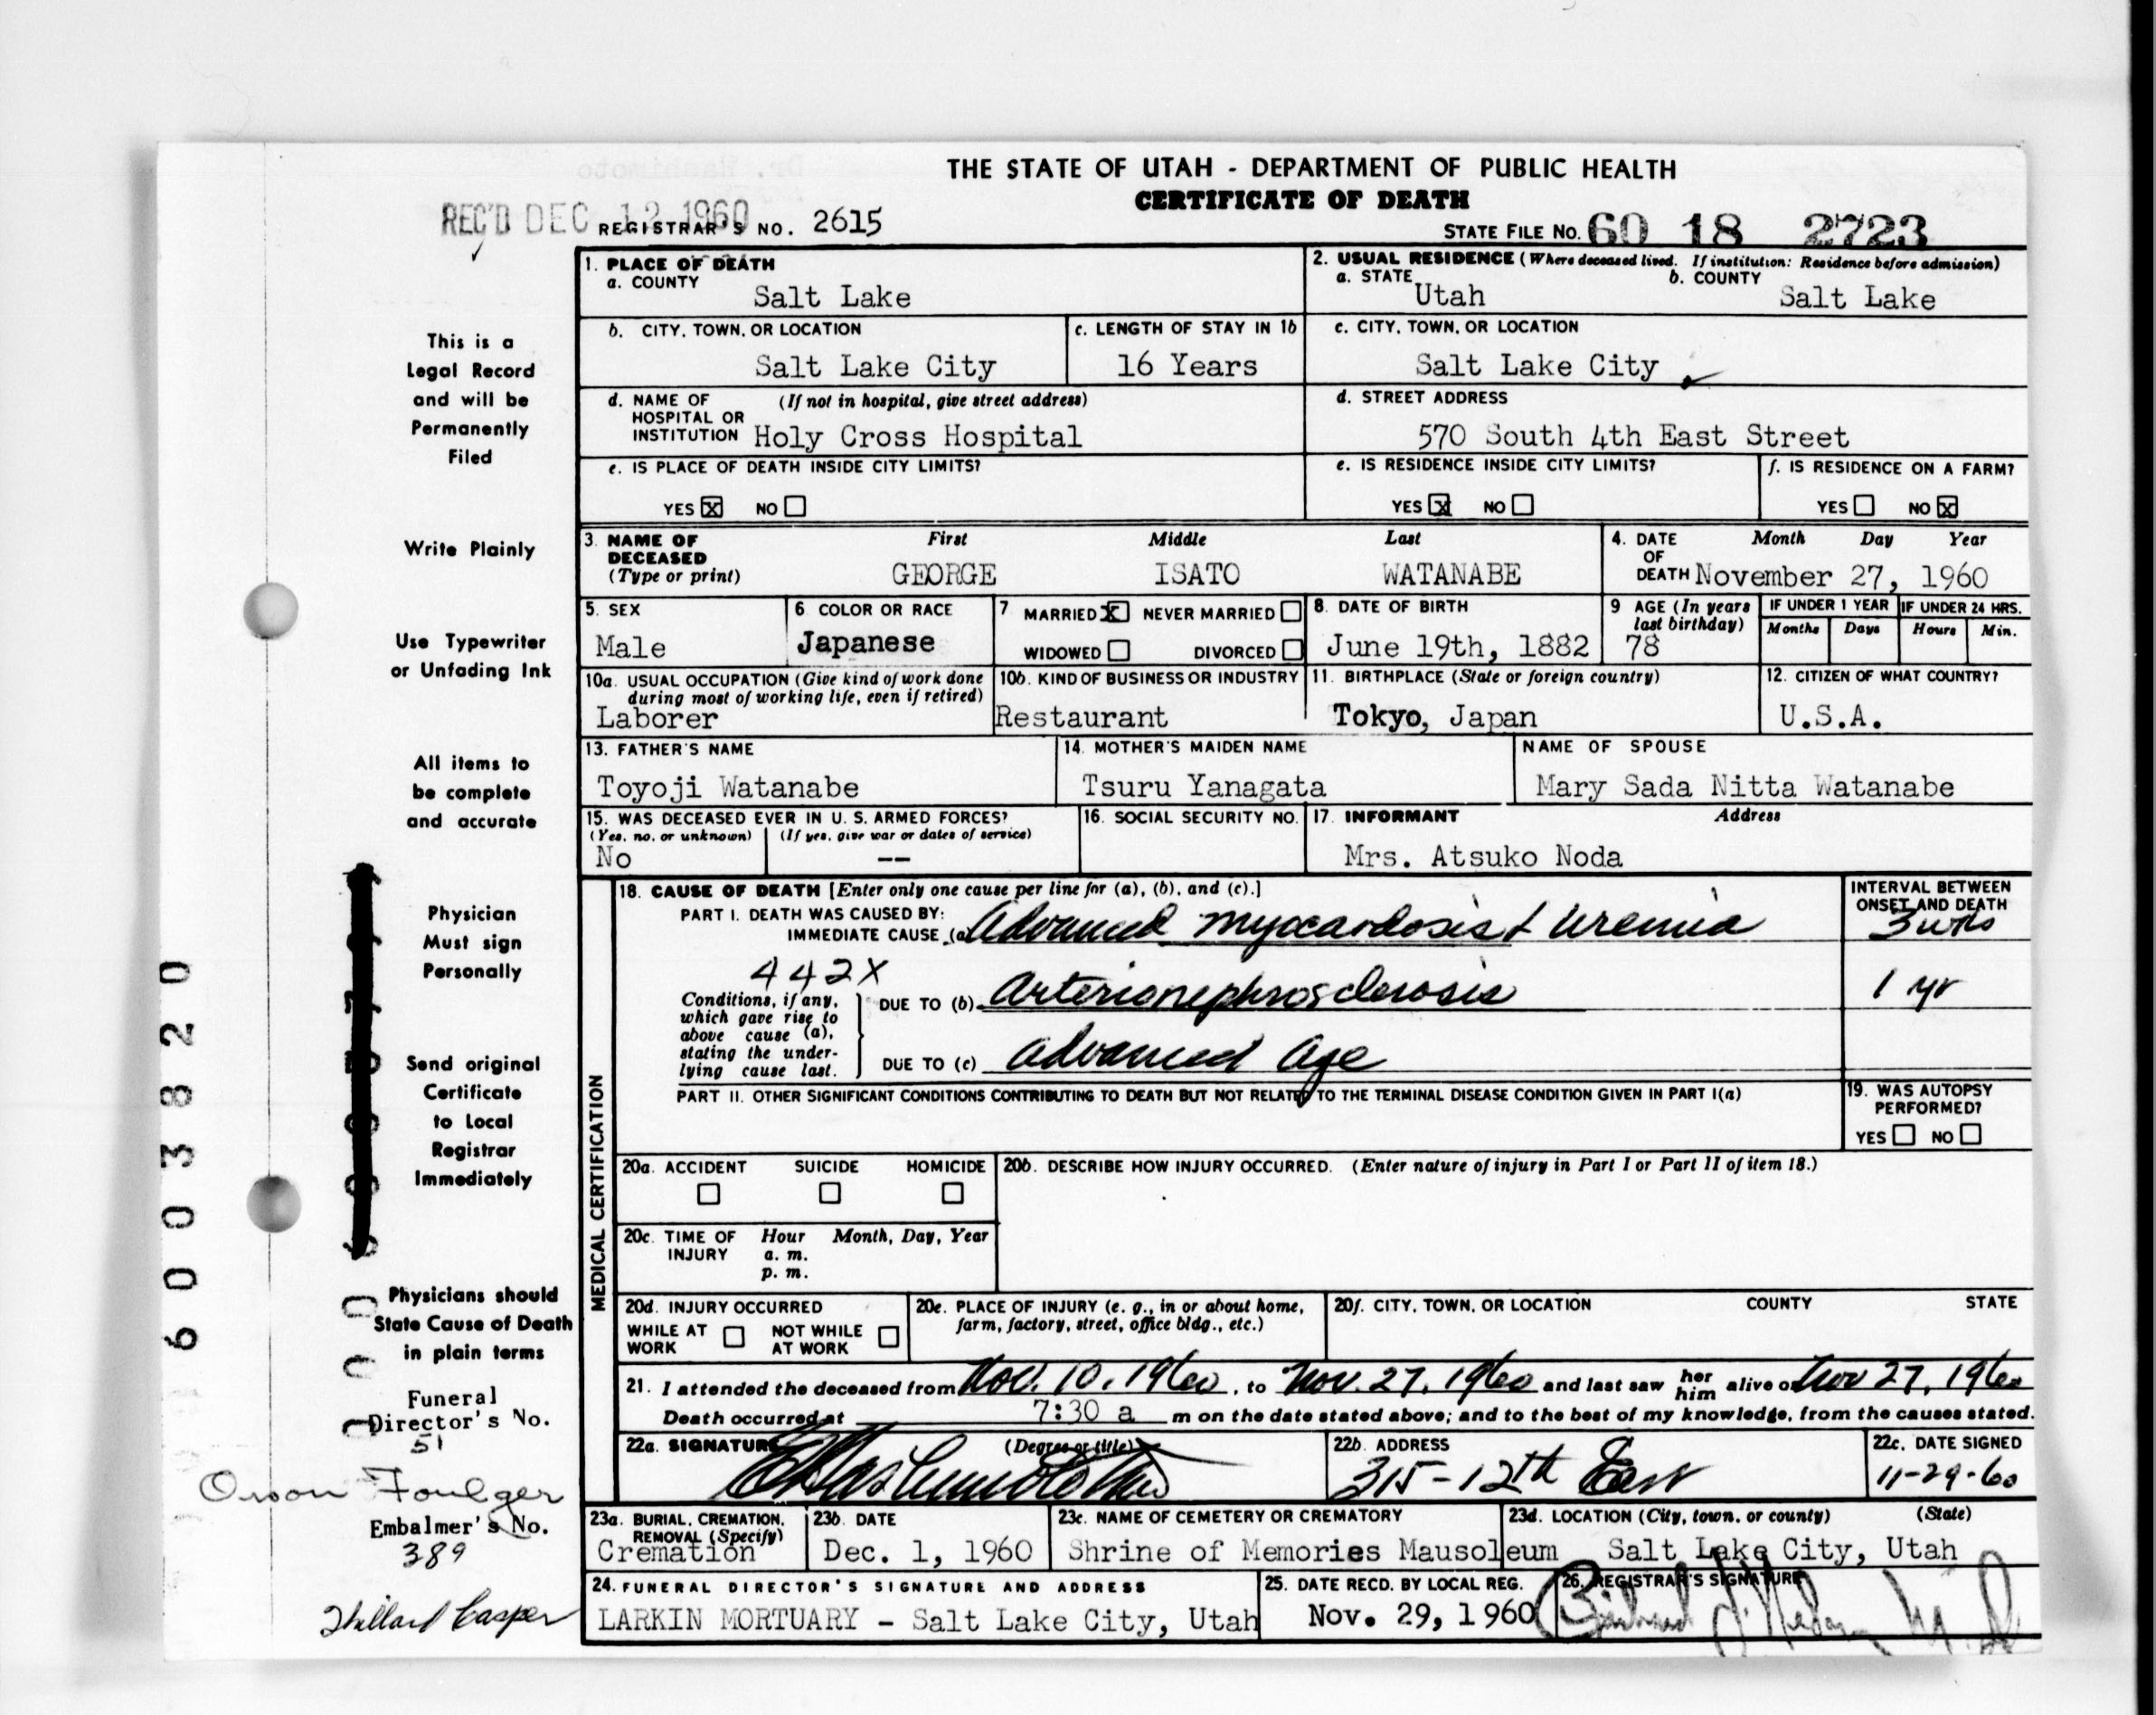 THE STATE OF UTAH - DEPARTMENT OF PUBLIC HEALTH
CERTIFICATE OF DEATH
REC'D DEC 12 1960
REGISTRAR'S NO. 2615
STATE FILE No. 60 18 2723
This is a
Legal Record
and will be
Permanently
Filed
Write Plainly
Use Typewriter
or Unfading Ink
All items to
be complete
and accurate
Physician
Must sign
Personally
Send original
Certificate
to Local
Registrar
Immediately
Physicians should
State Cause of Death
in plain terms
Funeral
Director's No.
51
Orson Foulger
Embalmer's No.
389
Casper
6003820
1. PLACE OF DEATH
a. COUNTY
Salt Lake
2. USUAL RESIDENCE (Where deceased lived. If institution: Residence before admission)
a. STATE Utah b. COUNTY Salt Lake
b. CITY, TOWN, OR LOCATION
Salt Lake City
c. LENGTH OF STAY IN 1b
16 Years
c. CITY, TOWN, OR LOCATION
Salt Lake City
d. NAME OF (If not in hospital, give street address)
HOSPITAL OR
INSTITUTION Holy Cross Hospital
d. STREET ADDRESS
570 South 4th East Street
e. IS PLACE OF DEATH INSIDE CITY LIMITS?
YES X NO
e. IS RESIDENCE INSIDE CITY LIMITS?
YES X NO
f. IS RESIDENCE ON A FARM?
YES NO X
3. NAME OF DECEASED
(Type or print)
First Middle Last
GEORGE ISATO WATANABE
4. DATE OF DEATH
Month Day Year
November 27, 1960
5. SEX
Male
6. COLOR OR RACE
Japanese
7 MARRIED X NEVER MARRIED
WIDOWED DIVORCED
8. DATE OF BIRTH
June 19th, 1882
9 AGE (In years
last birthday)
78
IF UNDER 1 YEAR
Months Days
IF UNDER 24 HRS.
Hours Min.
10a. USUAL OCCUPATION (Give kind of work done
during most of working life, even if retired)
Laborer
10b. KIND OF BUSINESS OR INDUSTRY
Restaurant
11. BIRTHPLACE (State or foreign country)
Tokyo, Japan
12. CITIZEN OF WHAT COUNTRY?
U.S.A.
13. FATHER'S NAME
Toyoji Watanabe
14. MOTHER'S MAIDEN NAME
Tsuru Yanagata
NAME OF SPOUSE
Mary Sada Nitta Watanabe
15. WAS DECEASED EVER IN U. S. ARMED FORCES?
(Yes, no, or unknown) (If yes, give war or dates of service)
No --
16. SOCIAL SECURITY NO.
17. INFORMANT Address
Mrs. Atsuko Noda
MEDICAL CERTIFICATION
18. CAUSE OF DEATH [Enter only one cause per line for (a), (b), and (c).]
PART I. DEATH WAS CAUSED BY:
IMMEDIATE CAUSE (a) Advanced myocardosis & Uremia
INTERVAL BETWEEN
ONSET AND DEATH
3 wks
442X
Conditions, if any,
which gave rise to
above cause (a),
stating the under-
lying cause last.
DUE TO (b) Arterionephrosclerosis
1 yr
DUE TO (c) Advanced Age
PART II. OTHER SIGNIFICANT CONDITIONS CONTRIBUTING TO DEATH BUT NOT RELATED TO THE TERMINAL DISEASE CONDITION GIVEN IN PART I(a)
19. WAS AUTOPSY
PERFORMED?
YES NO
20a. ACCIDENT SUICIDE HOMICIDE
20b. DESCRIBE HOW INJURY OCCURRED. (Enter nature of injury in Part I or Part II of item 18.)
20c. TIME OF INJURY
Hour Month, Day, Year
a. m.
p. m.
20d. INJURY OCCURRED
WHILE AT WORK NOT WHILE AT WORK
20e. PLACE OF INJURY (e. g., in or about home,
farm, factory, street, office bldg., etc.)
20f. CITY, TOWN, OR LOCATION COUNTY STATE
21. I attended the deceased from Nov. 10, 1960, to Nov. 27, 1960 and last saw her him alive on Nov 27, 1960
Death occurred at 7:30 a m on the date stated above; and to the best of my knowledge, from the causes stated.
22a. SIGNATURE (Degree or title)
22b. ADDRESS
315-12th East
22c. DATE SIGNED
11-29-60
23a. BURIAL, CREMATION,
REMOVAL (Specify)
Cremation
23b. DATE
Dec. 1, 1960
23c. NAME OF CEMETERY OR CREMATORY
Shrine of Memories Mausoleum
23d. LOCATION (City, town, or county) (State)
Salt Lake City, Utah
24. FUNERAL DIRECTOR'S SIGNATURE AND ADDRESS
LARKIN MORTUARY - Salt Lake City, Utah
25. DATE RECD. BY LOCAL REG.
Nov. 29, 1960
26. REGISTRAR'S SIGNATURE